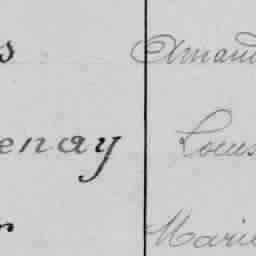 s Amand
enay Louis
r Marie